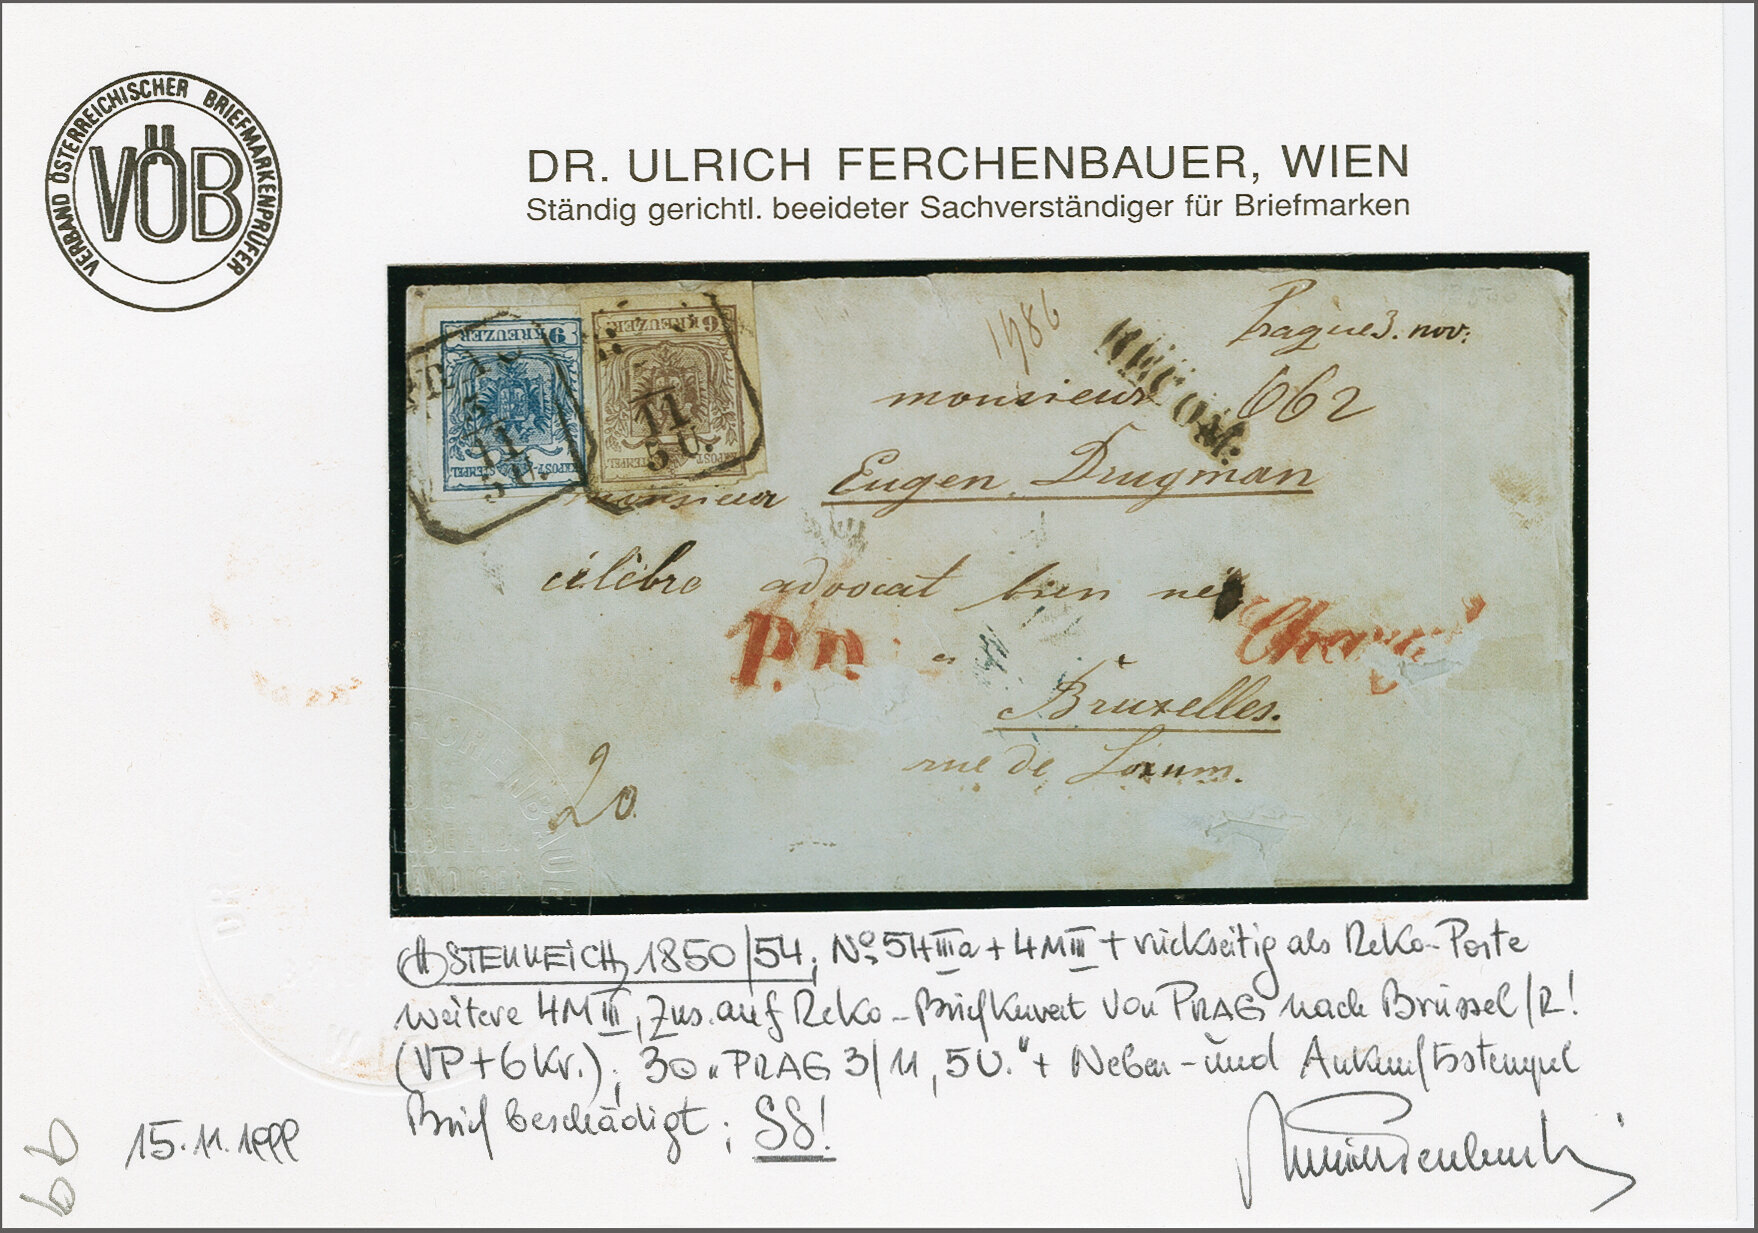 VERBAND ÖSTERREICHISCHER BRIEFMARKENPRÜFER
VÖB
DR. ULRICH FERCHENBAUER, WIEN
Ständig gerichtl. beeideter Sachverständiger für Briefmarken
9 KREUZER
6 KREUZER
KKPOST-STEMPEL
KKPOST-STEMPEL
3
11
5 U.
11
5 U.
1986
RECOM:
Prague 3. nov:
monsieur 662
Eugen Drugman
monsieur
célèbre advocat bien né
P.D.
Chargé
a
Bruxelles.
rue de Loxum.
20.
ÖSTERREICH 1850/54; No 5HIIIa + 4MIII + rückseitig als Reko-Porto
weitere 4MIII, zus. auf Reko-Briefkuvert von PRAG nach Brüssel/R!
(VP+6Kr.); 30 "PRAG 3/11, 5U." + Neben- und Ankunftsstempel
Brief beschädigt; SS!
15.11.1999
66